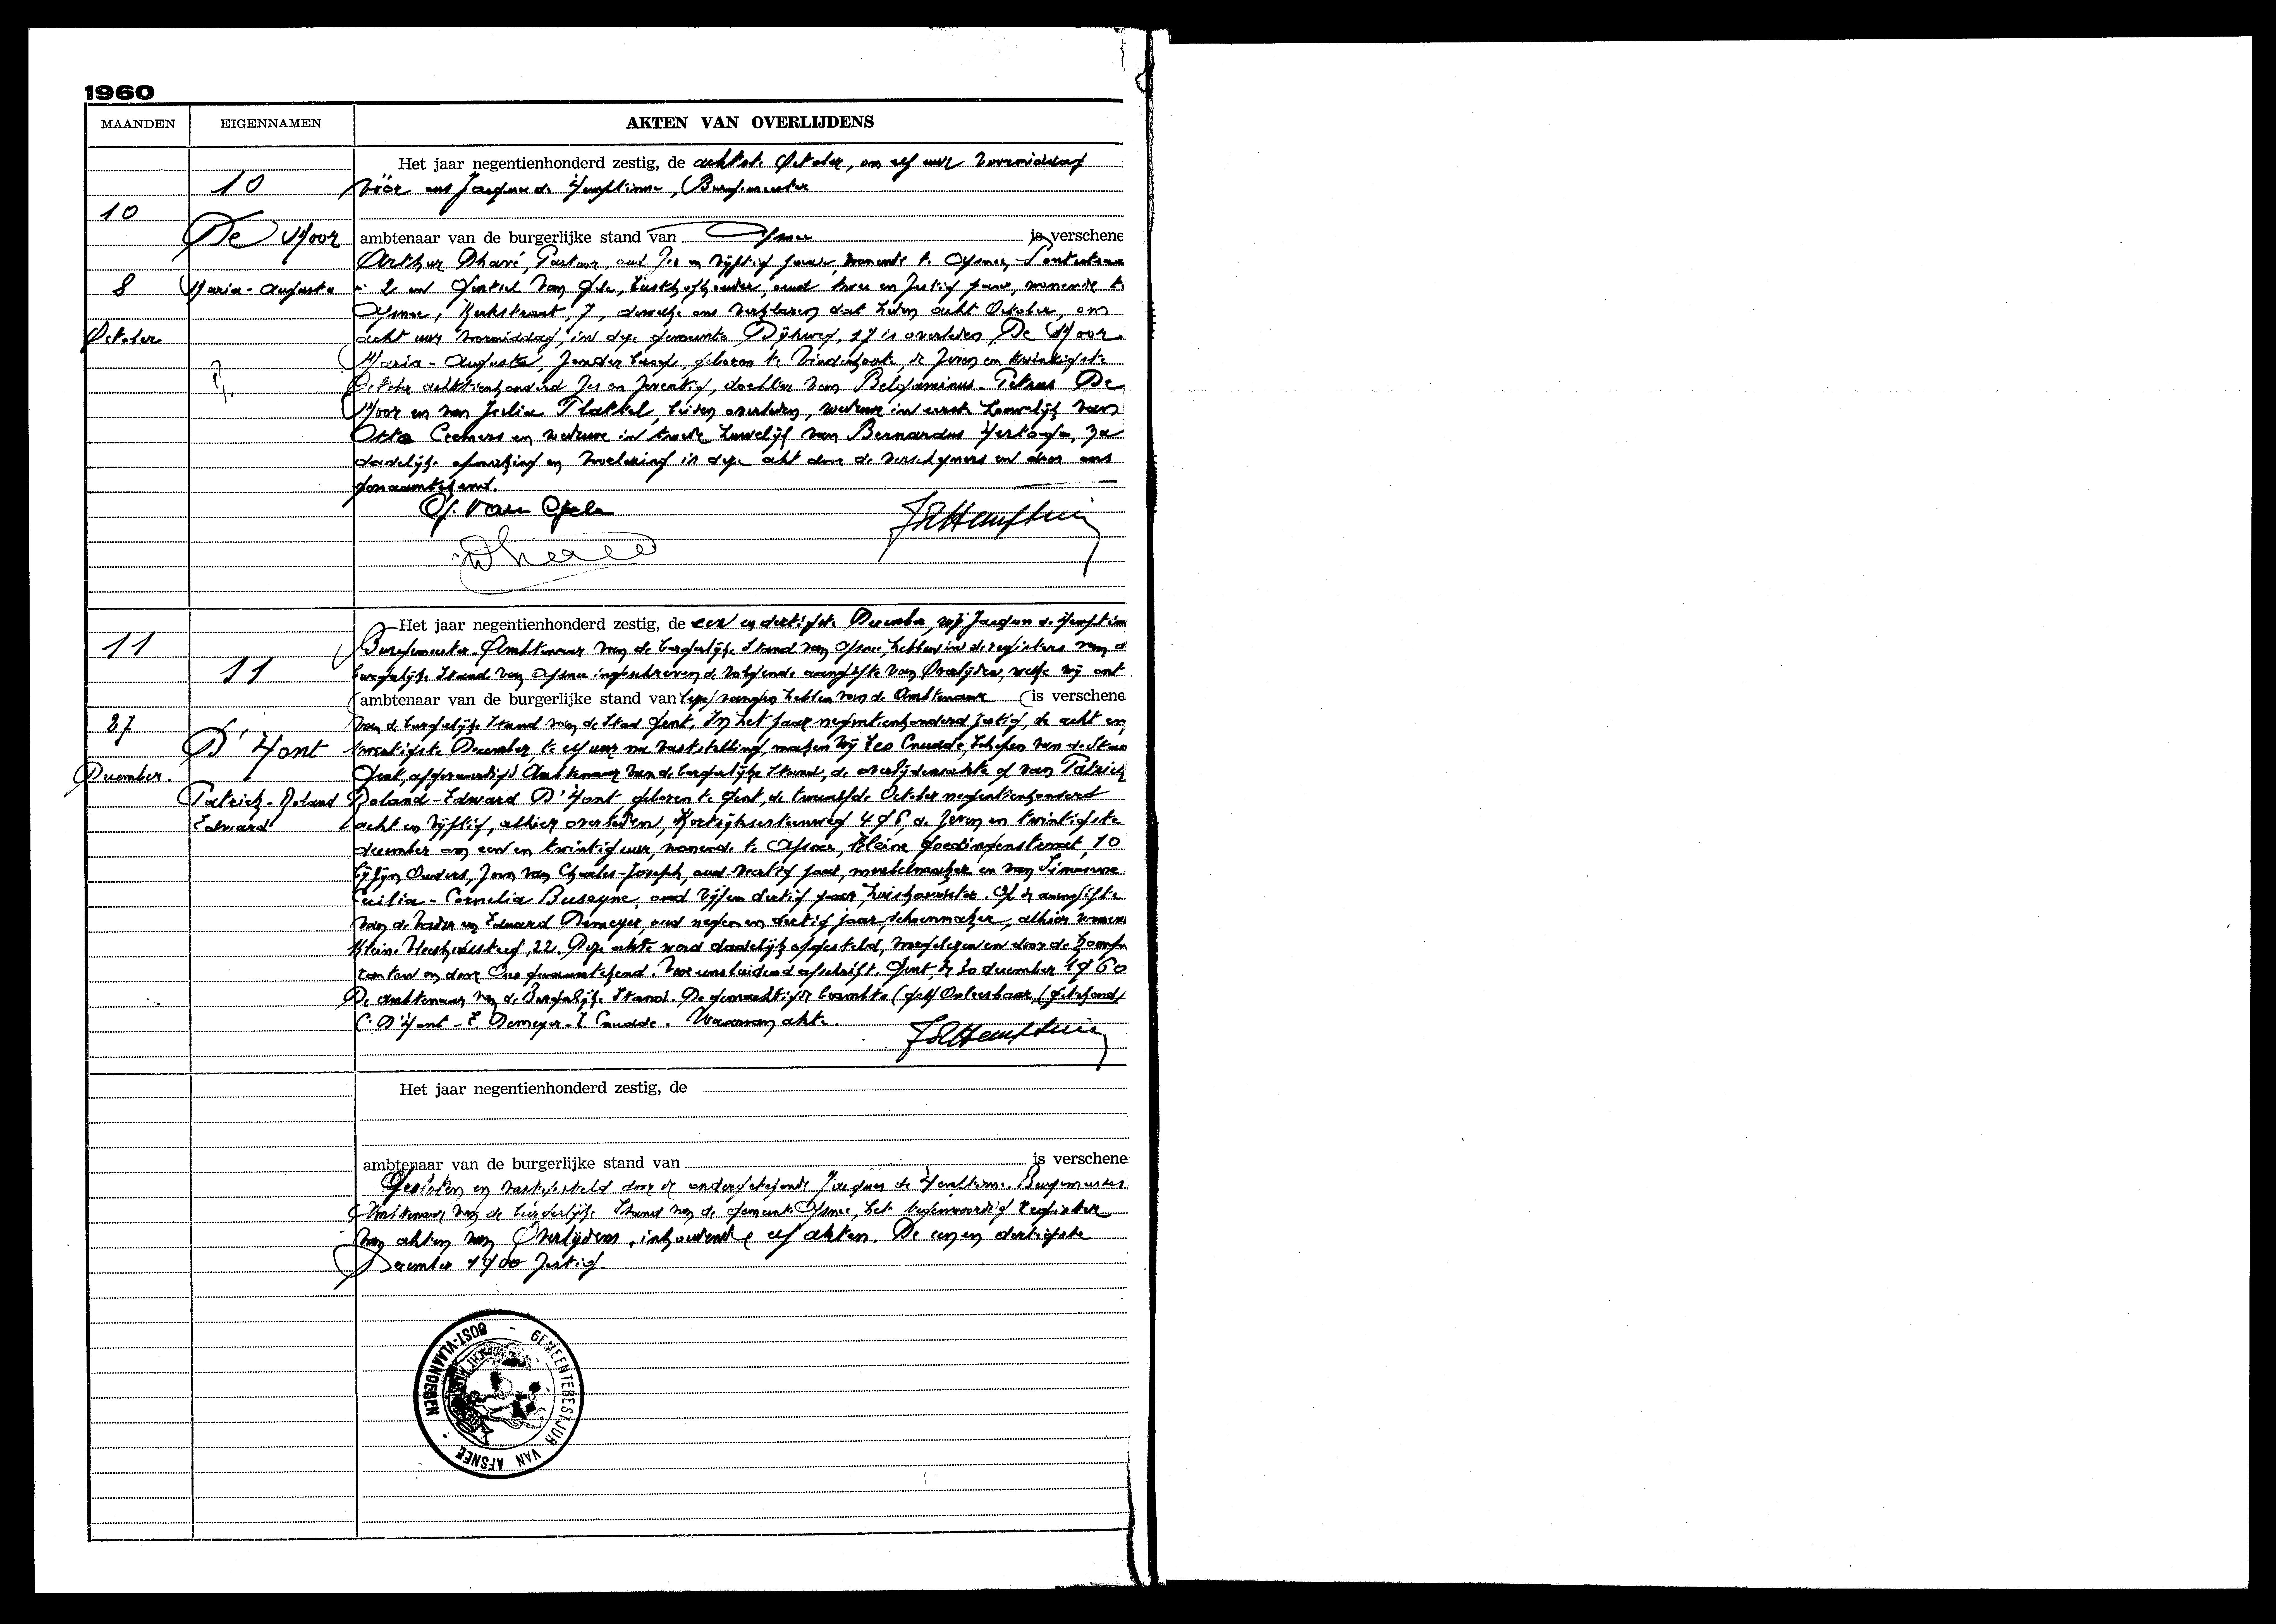 1960
MAANDEN EIGENNAMEN AKTEN VAN OVERLIJDENS
10
10
De Moor
8 Maria-Augusta
October
Het jaar negentienhonderd zestig, de achtste October, om elf uur voormiddag
vóór ons Jacques de Hemptinne, Burgemeester
ambtenaar van de burgerlijke stand van Afsnee is verschene
Arthur Dhavé, Pastoor, oud zes en vijftig jaar, wonende te Afsnee,
2 en Gentiel Van Gele, oud twee en zestig jaar, wonende te
Afsnee, Kerkstraat, 7, dewelke ons verklaren dat heden acht October, om
acht uur voormiddag, in deze gemeente Dijkweg, 17 is overleden De Moor
Maria-Augusta, zonder beroep, geboren te Vinderhoute, de zeven en twintigste
October achttienhonderd zes en zeventig, dochter van Petrus De
Moor en van Julia Plattel, beiden overleden, weduwe in eerste huwelijk van
Otto Cremers en weduwe in tweede huwelijk van Bernardus Hertoge, Na
dadelijke opmaking en voorlezing is deze akt door de verschijners en door ons
genaamtekend.
11
11
27
D'Hont
December.
Patrick-Roland
Edward
Het jaar negentienhonderd zestig, de een en dertigste December, wij Jacques de Hemptinn
Burgemeester-Ambtenaar van de burgerlijke Stand van Afsnee, hebben in de registers van d
burgerlijke Stand van Afsnee ingeschreven de volgende aangifte van Overlijden, welke wij ont
ambtenaar van de burgerlijke stand van vangen hebben van de Ambtenaar is verschene
van de burgerlijke Stand van de Stad Gent. In het jaar negentienhonderd zestig, de acht en
twintigste December, te elf uur na vaststelling, maken wij Leo Cnudde, Schepen van de Stad
Gent, afgevaardigd Ambtenaar van de burgerlijke Stand, de overlijdensakte op van Patrick
Roland-Edward D'Hont, geboren te Gent, de twaalfde October negentienhonderd
acht en vijftig, alhier overleden, Kortrijksesteenweg de zeven en twintigste
december om een en twintig uur, wonende te Afsnee, Kleine Goedingenstraat, 10
bij zijn Ouders, zoon van Charles-Joseph, oud veertig jaar, meubelmaker en van Simonne
Cecilia-Cornelia Buseyne, oud vijf en dertig jaar, huishoudster. Op de aangifte
van de Vader en Eduard Demeyer, oud negen en dertig jaar, schoenmaker, alhier wonen
Kleine 22. Deze akte werd dadelijk opgesteld, voorgelezen en door de komp
ranten en door Ons genaamtekend. Voor eensluidend afschrift. Gent, de 30 december 1960
De ambtenaar van de Burgerlijke Stand. De gemachtigde beambte (get) Onleesbaar (getekend)
C. D'Hont - E. Demeyer - L. Cnudde. Waarvan akte.
Het jaar negentienhonderd zestig, de
ambtenaar van de burgerlijke stand van is verschene
Gesloten en vastgesteld door de ondergetekende Jacques de Hemptinne Burgemeester
Ambtenaar van de burgerlijke Stand van de gemeente Afsnee, het tegenwoordig register
van akten van Overlijdens, inhoudende elf akten. De een en dertigste
December 1900 zestig.
GEMEENTEBESTUUR VAN AFSNEE - OOST-VLAANDEREN -